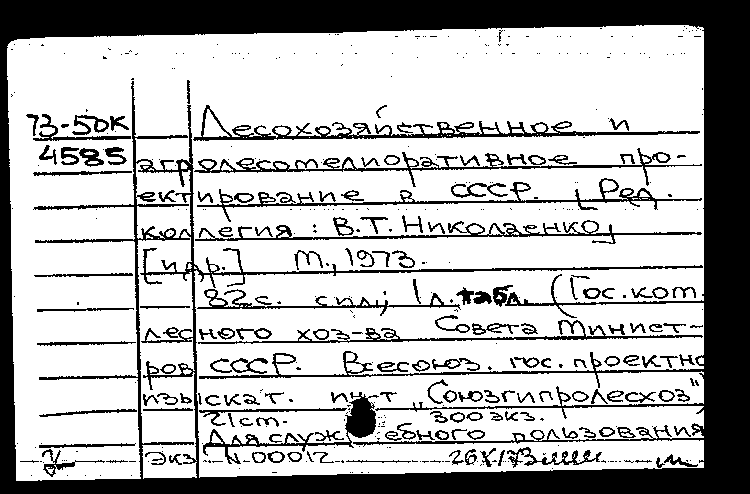 73-50К Лесохозяйственное и
4585 агролесомелиоративное про-
ектирование в СССР. [Ред.
коллегия: В.Т. Николаенко]
[и др.] М., 1973.
82с. с ил.; 1 л. табл. (Гос. ком.
лесного хоз-ва Совета Минист-
ров СССР. Всесоюз. гос. проектно
изыскат. ин-т „Союзгипролесхоз"
21 cm. 300 экз.
Для служебного пользования
Экз N-00012 26X/73